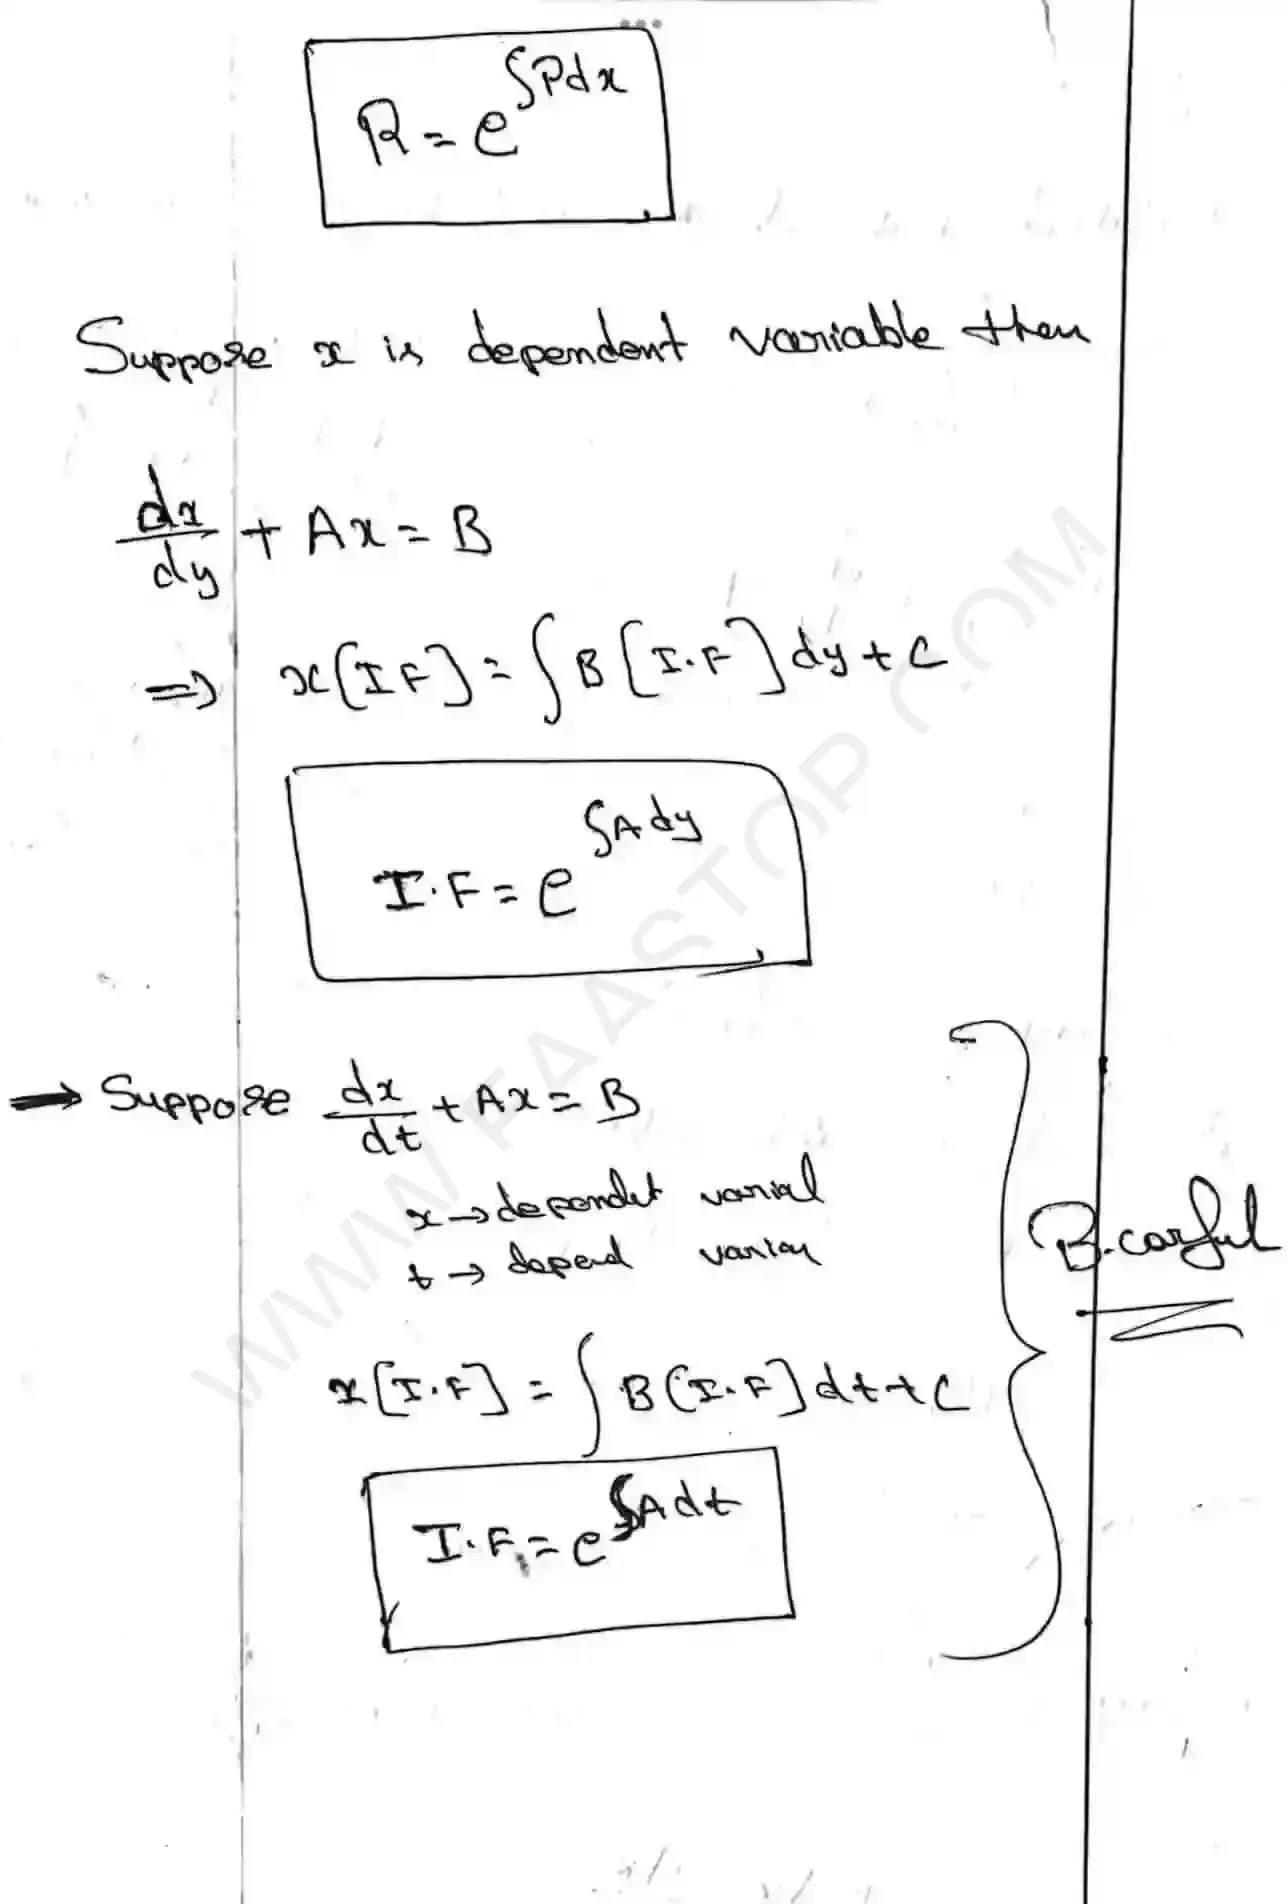 R = e^∫Pdx
Suppose x is dependent variable then
dx/dy + Ax = B
⇒ x[IF] = ∫B[I.F]dy + C
I.F = e^∫A dy
→ Suppose dx/dt + Ax = B
x → dependet varial
t → depend
B.carful
x[I.F] = ∫B(I.F]dt + C
I.F. = e^∫Adt
WWW.FAASTOP.COM